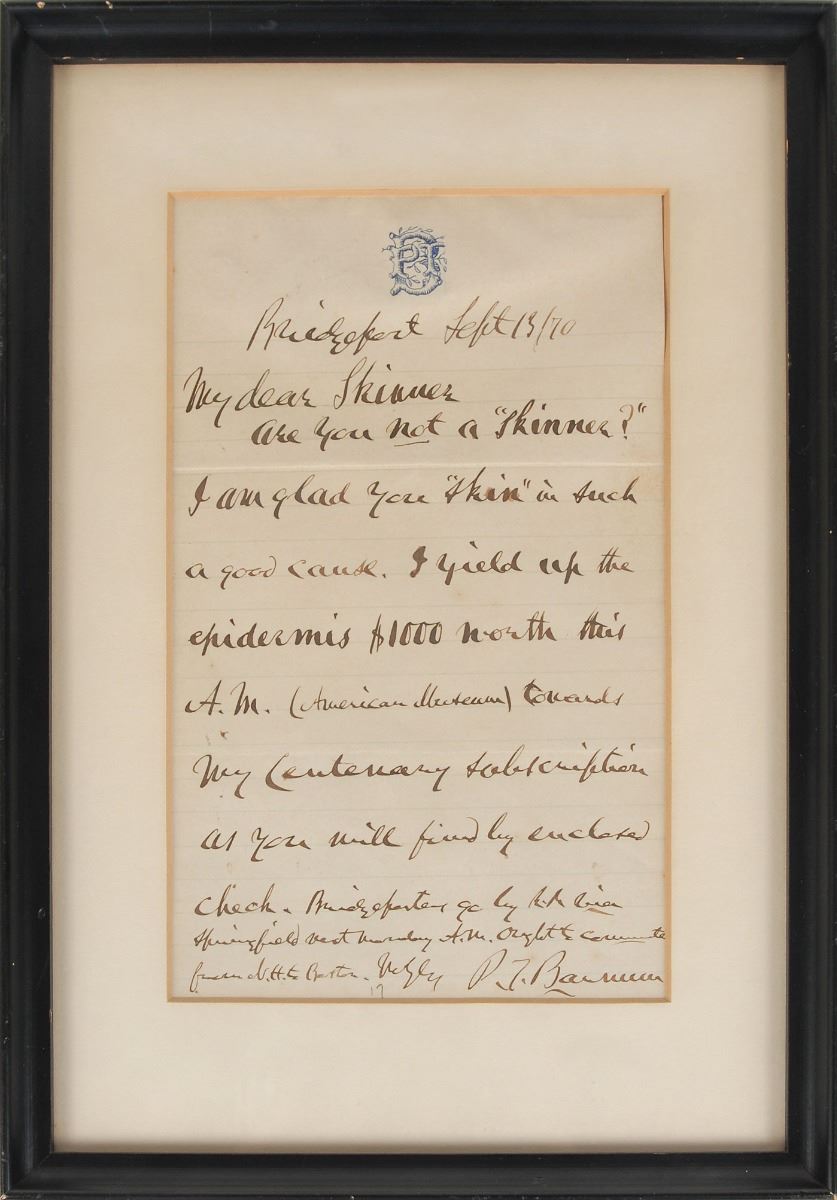 Bridgeport Sept 13/70
My dear Skinner
Are you not a "Skinner?"
I am glad you "skin" in such
a good cause. I yield up the
epidermis $1000 worth this
A.M. (American Museum) towards
my Centenary subscription
as you will find by enclosed
check. Bridgeporters go by R.R. via
Springfield next Monday A.M. Ought to commute
from N.H. to Boston. P.T. Barnum
17